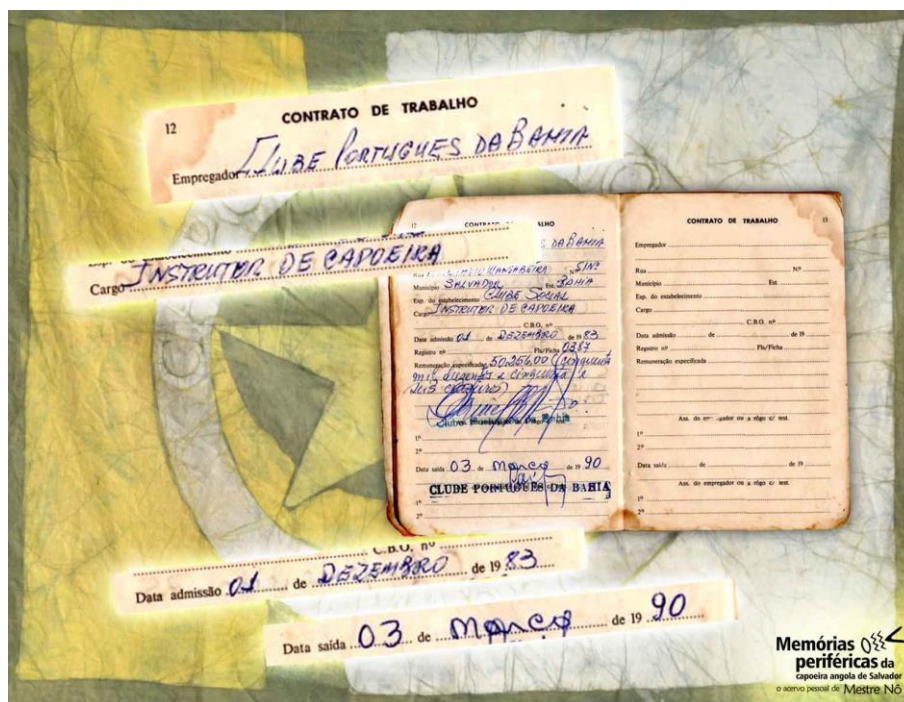 12 CONTRATO DE TRABALHO
Empregador CLUBE PORTUGUES DA BAHIA
Cargo INSTRUTOR DE CAPOEIRA
12 CONTRATO DE TRABALHO
S DA BAHIA
Rua MANGABEIRA Nº S/Nº
Município SALVADOR Est. BAHIA
Esp. do estabelecimento CLUBE SOCIAL
Cargo INSTRUTOR DE CAPOEIRA
C.B.O. nº
Data admissão 01 de DEZEMBRO de 1983
Registro nº Fls/Ficha 0387
Remuneração especificada 50.256,00 (cinquenta
mil duzentos e cinquenta e
seis cruzeiros)
Clube Português da Bahia
1º
2º
Data saída 03 de março de 1990
CLUBE PORTUGUÊS DA BAHIA
1º
2º
CONTRATO DE TRABALHO 13
Empregador
Rua Nº
Município Est.
Esp. do estabelecimento
Cargo
C.B.O. nº
Data admissão de de 19
Registro nº Fls/Ficha
Remuneração especificada
Ass. do empregador ou a rôgo c/ test.
1º
2º
Data saída de de 19
Ass. do empregador ou a rôgo c/ test.
1º
2º
C.B.O. nº
Data admissão 01 de DEZEMBRO de 1983
Data saída 03 de março de 1990
Memórias
periféricas da
capoeira angola de Salvador
o acervo pessoal de Mestre Nô